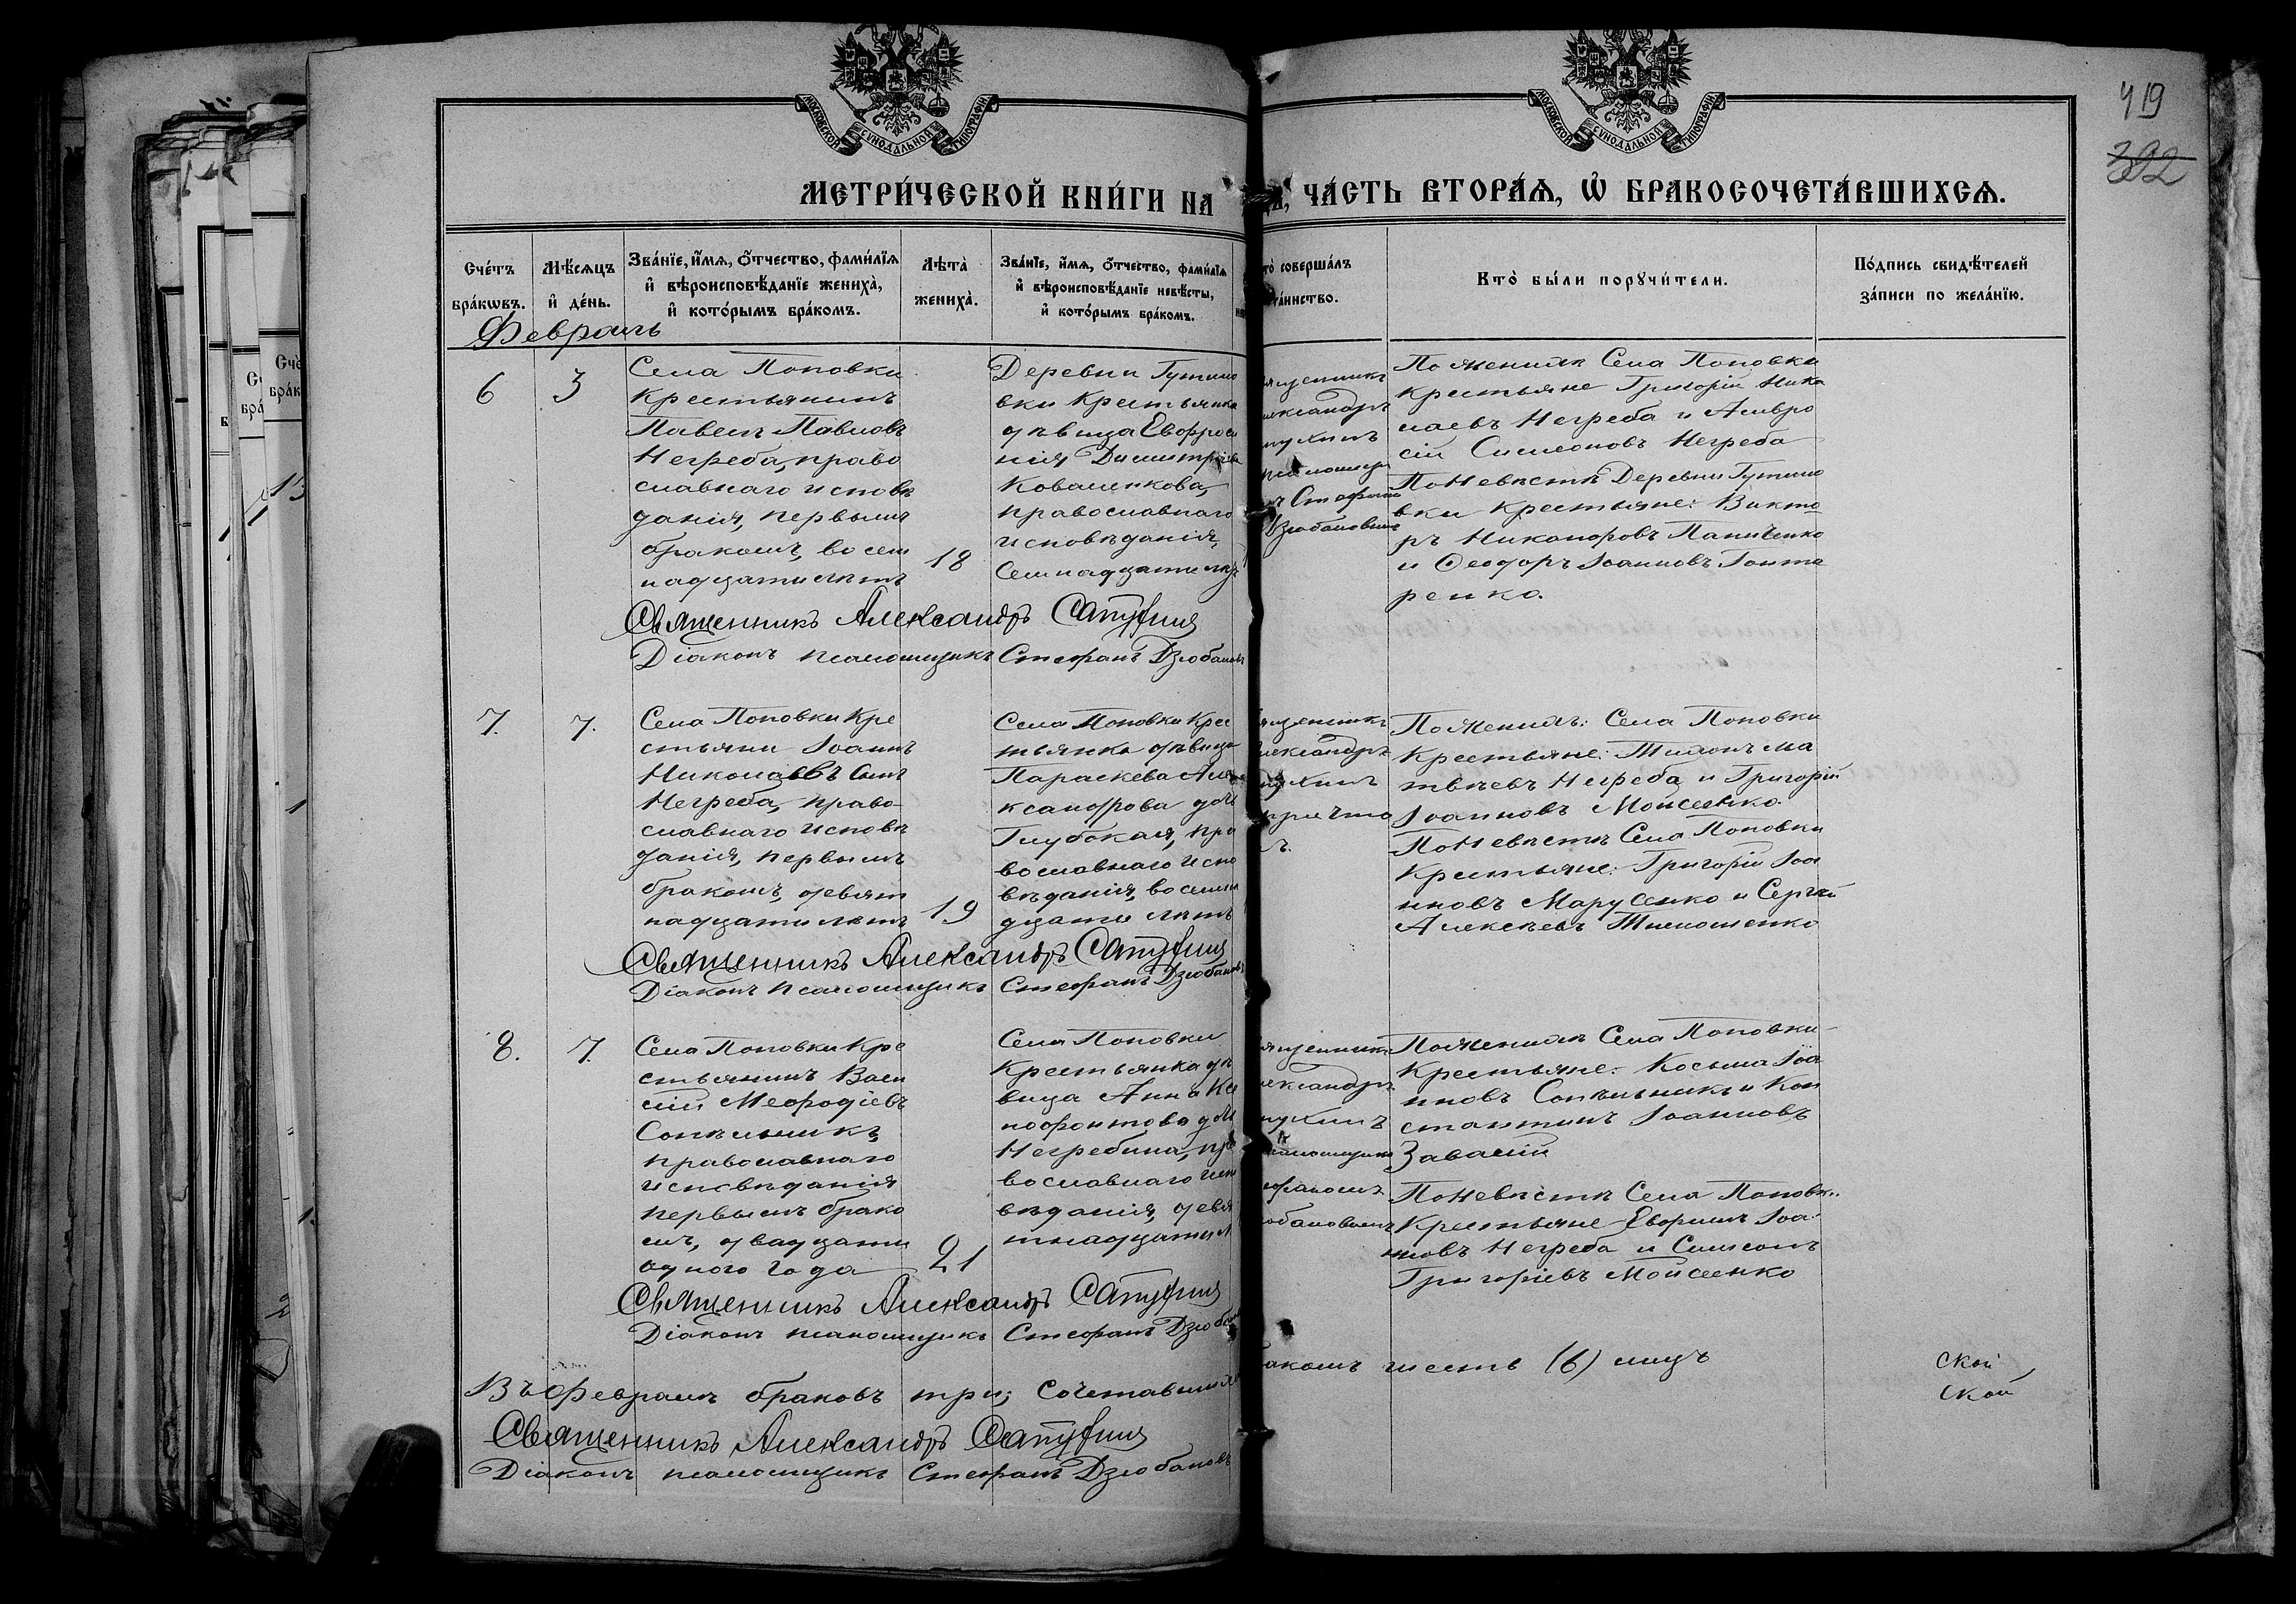 МОСКОВСКОЙ СѴНОДАЛЬНОЙ ТИПОГРАФІИ
МОСКОВСКОЙ СѴНОДАЛЬНОЙ ТИПОГРАФІИ
419
392
МЕТРИ́ЧЕСКОЙ КНИ́ГИ НА
ЧА́СТЬ ВТОРА́Ѧ, Ѽ БРАКОСОЧЕТА́ВШИХСѦ.
Сче́тъ
бра́кѡвъ.
Мѣ́сѧцъ
и҆ де́нь.
Зва́нїе, и҆́мѧ, о҆́тчество, фами́лїѧ
и҆ вѣроисповѣ́данїе жениха̀,
и҆ кото́рымъ бра́комъ.
Лѣта̀
жениха̀.
Зва́нїе, и҆́мѧ, о҆́тчество, фами́лїѧ
и҆ вѣроисповѣ́данїе невѣ́сты,
и҆ кото́рымъ бра́комъ.
то̀ соверша́лъ
та́инство.
Кто̀ бы́ли порꙋчи́тели.
По́дпись свидѣ́телей
за́писи по жела́нїю.
Февраль
6
3
Села Поповки
Крестьянинъ
Павелъ Павловъ
Негреба, право
славнаго исповѣ
данія, первымъ
бракомъ, восем
надцати лѣтъ
18
Деревни Гутиро
вки Крестьянка
дѣвица Евфроси
нія Димитріева
Коваленкова,
православнаго
исповѣданія,
семнадцати лѣтъ
ященникъ
лександръ
пухинъ
псаломщи
ъ Стефан
Дзюбановым
По женихѣ Села Поповки
Крестьяне Григорій Нико
лаевъ Негреба и Амвро
сій Симеоновъ Негреба
По Невѣстѣ Деревни Гутиро
вки Крестьяне: Викто
ръ Никаноровъ Панченко
и Ѳеодоръ Іоанновъ Гонта
ренко.
Священникъ Александръ Сапухинъ
Діаконъ псаломщикъ Стефанъ Дзюбановъ
7.
7.
Села Поповки Кре
стьянин Іоаннъ
Николаевъ сынъ
Негреба, право-
славнаго исповѣ
данія, первымъ
бракомъ, девят
надцати лѣтъ
19
Села Поповки Крес
тьянка дѣвица
Параскева Але
ксандрова дочь
Глубокая, пра
вославнаго испо
вѣданія, восемна
дцати лѣтъ
ященникъ
лександръ
пухинъ
причто
ъ.
По Женихѣ: Села Поповки
Крестьяне: Тихонъ Ма
твѣевъ Негреба и Григорій
Іоанновъ Мойсеенко.
По Невѣстѣ Села Поповки
Крестьяне: Григорій Іоа
нновъ Марусенко и Сергѣй
Алексѣевъ Тимошенко
Священникъ Александръ Сапухинъ
Діаконъ псаломщикъ Стефанъ Дзюбановъ
8.
7.
Села Поповки Кре
стьянинъ Васи
лій Меѳодіевъ
Сопѣльникъ,
православнаго
исповѣданія
первымъ брако
мъ, двадцати
одного года
21
Села Поповки
Крестьянка дѣ
вица Анна Ксе
нофонтова дочь
Негребина, пра
вославнаго испо
вѣданія, девя
тнадцати л
ященникъ
лександръ
пухинъ
аломщикъ
ефаномъ
юбановымъ
По Женихѣ Села Поповки
Крестьяне: Косьма Іоа
нновъ Сопѣльникъ и Кон
стантинъ Іоанновъ
Завалій
По Невѣстѣ Села Поповки
Крестьяне Евфимъ Іоа
нновъ Негреба и Симеонъ
Григоріевъ Мойсеенко
Священникъ Александръ Сапухинъ
Діаконъ псаломщикъ Стефанъ Дзюбановъ
Въ Февралѣ браковъ три; сочетавшихся
акомъ шесть (6) лицъ
ской
ской
Священникъ Александръ Сапухинъ
Діаконъ псаломщикъ Стефанъ Дзюбановъ